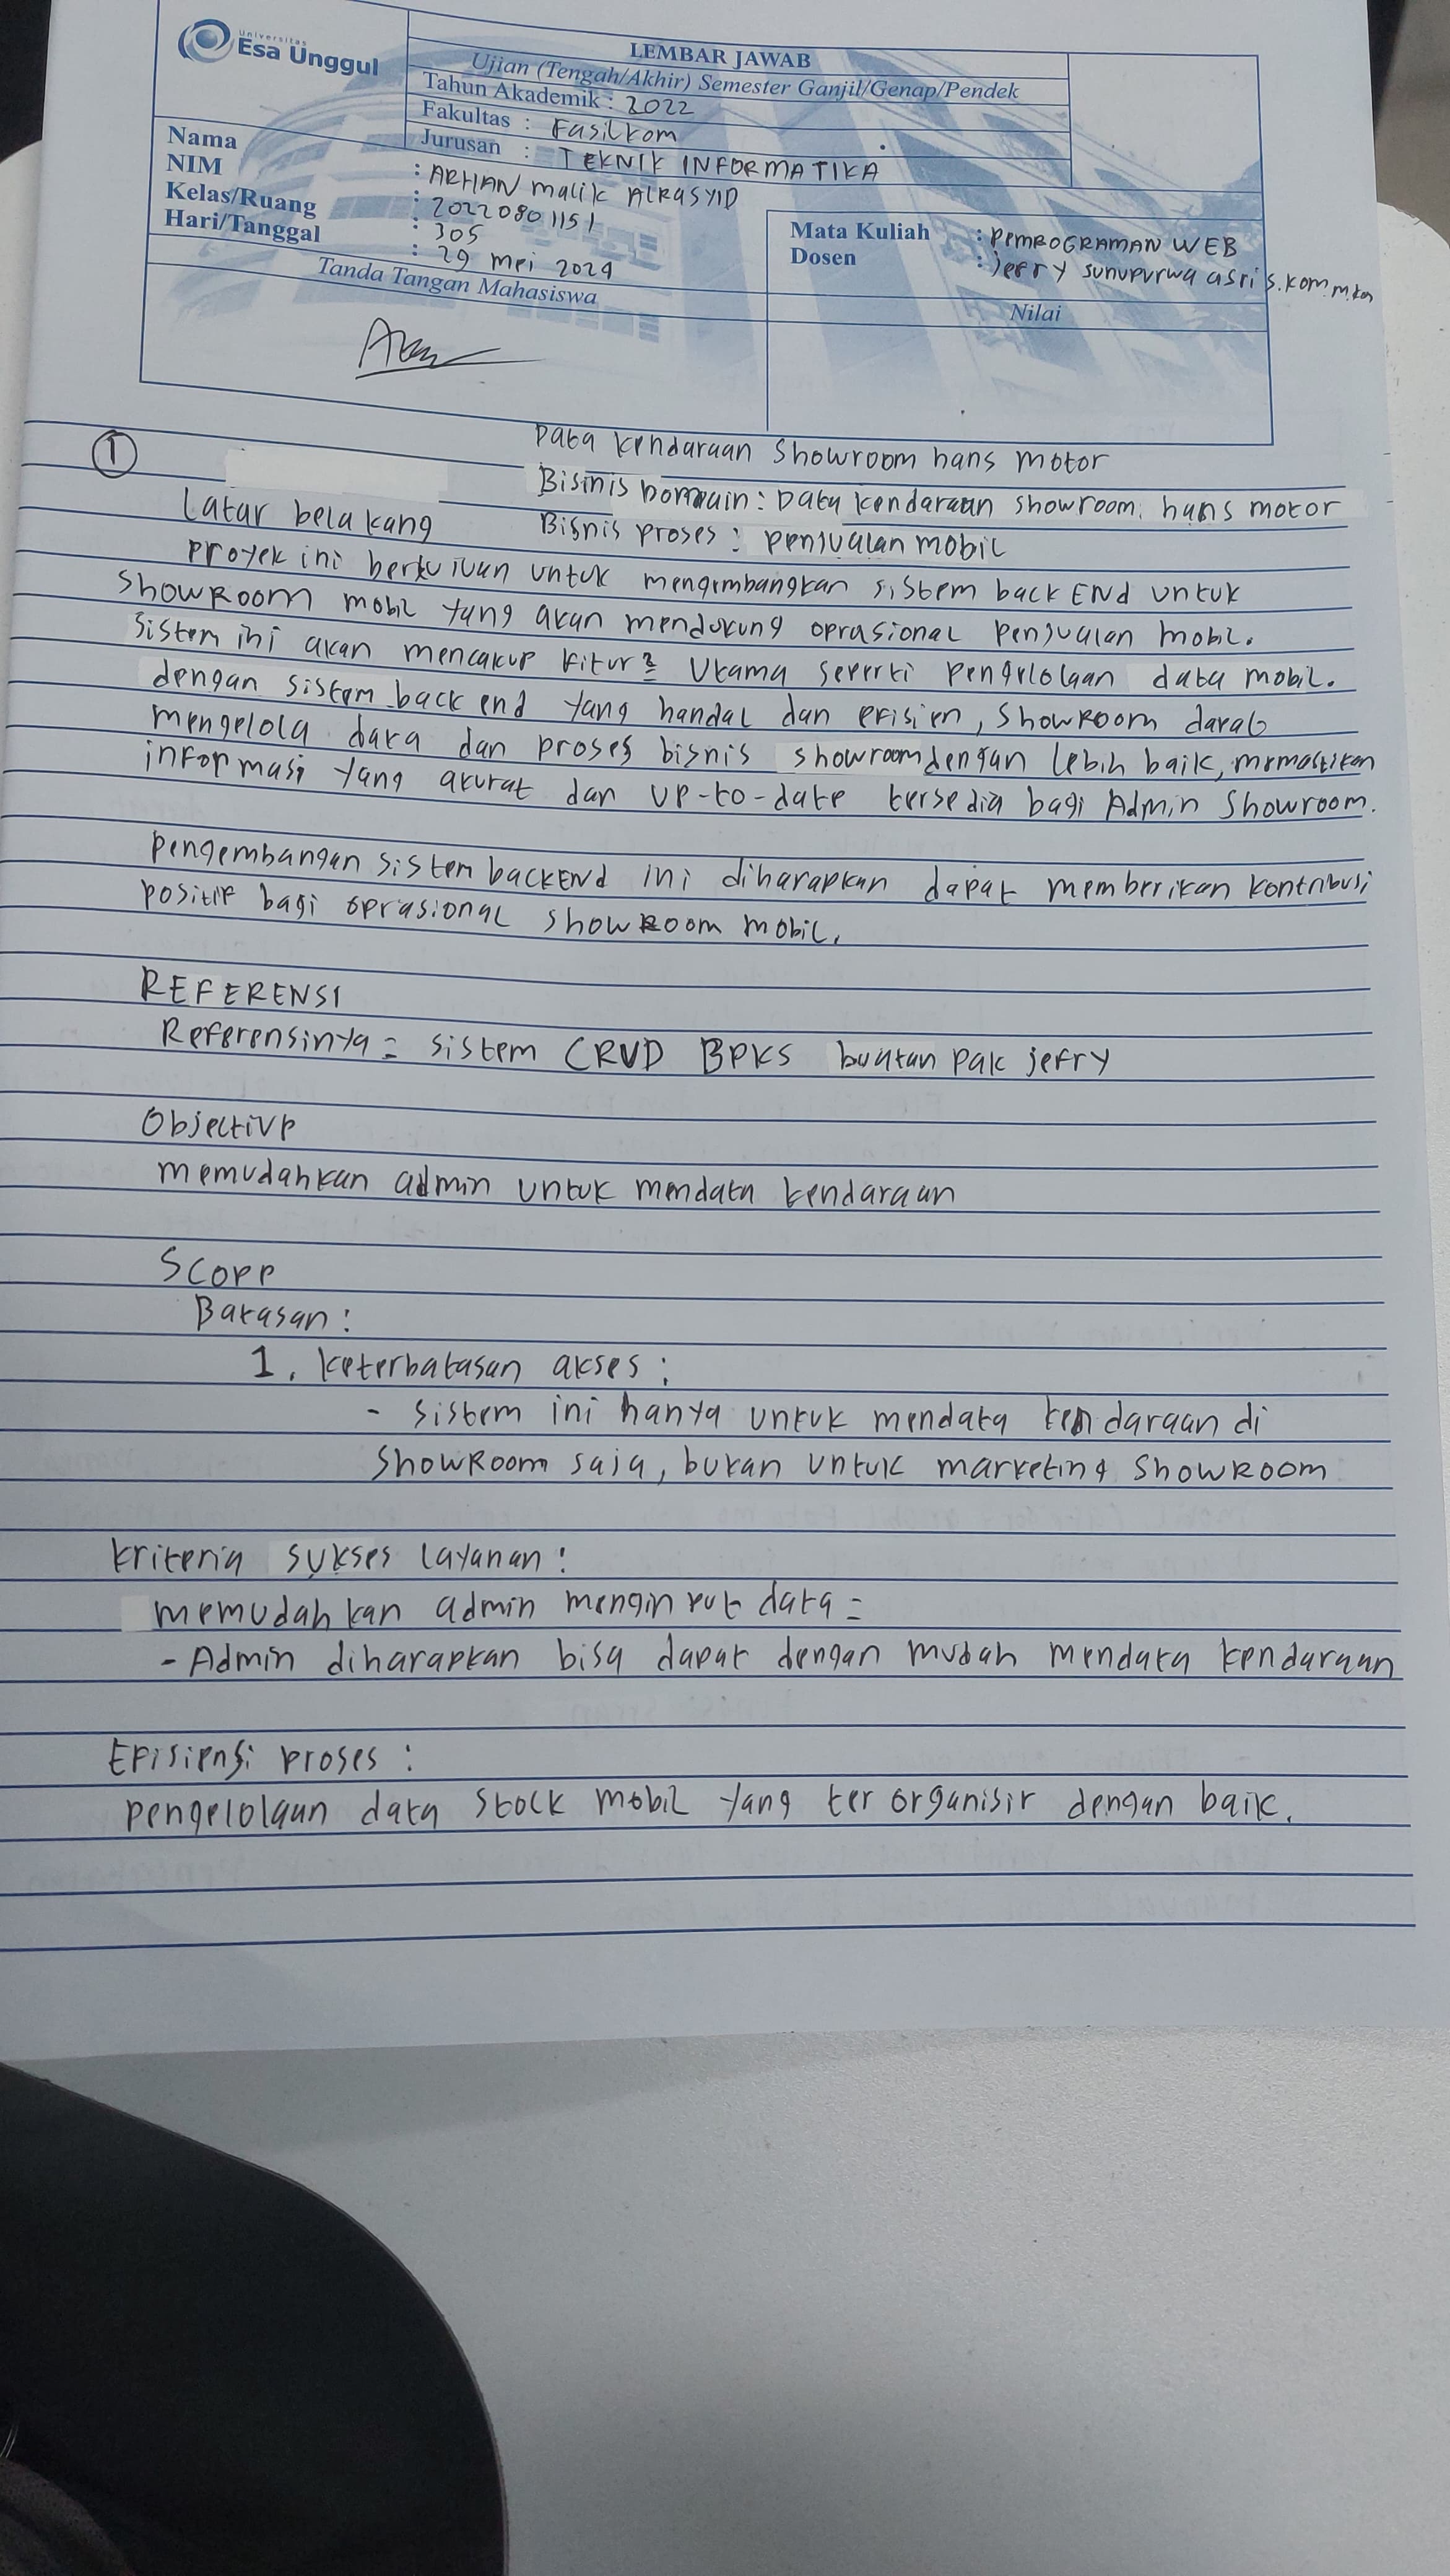 Universitas
Esa Unggul
LEMBAR JAWAB
Ujian (Tengah/Akhir) Semester Ganjil/Genap/Pendek
Tahun Akademik : 2022
Fakultas : Fasilkom
Jurusan : TEKNIK INFORMATIKA
Nama : ARHAN malik ALRASYID
NIM : 20220801151
Kelas/Ruang : 305
Hari/Tanggal : 29 mei 2024
Mata Kuliah : PEMROGRAMAN WEB
Dosen : jefry sunupurwa asri S.kom.m.kom
Tanda Tangan Mahasiswa
Nilai
1
Data kendaraan Showroom hans motor
Bisinis Domain : Data kendaraan showroom hans motor
Latar belakang
Bisnis proses : penjualan mobil
proyek ini bertujuan untuk mengembangkan sistem back END untuk
showRoom mobil yang akan mendukung oprasional penjualan mobil.
Sistem ini akan mencakup fitur2 utama seperti pengelolaan data mobil.
dengan sistem back end yang handal dan efisien, showRoom dapat
mengelola data dan proses bisnis showroom dengan lebih baik, memastikan
informasi yang akurat dan up-to-date tersedia bagi Admin Showroom.
pengembangan sistem backEND ini diharapkan dapat memberikan kontribusi
positif bagi oprasional showRoom mobil.
REFERENSI
Referensinya = sistem CRUD BPKS buatan pak jefry
Objective
memudahkan admin untuk mendata kendaraan
Scope
Batasan :
1. keterbatasan akses :
- sistem ini hanya untuk mendata kendaraan di
showRoom saja, bukan untuk marketing showRoom
kriteria sukses layanan :
memudahkan admin menginput data =
- Admin diharapkan bisa dapat dengan mudah mendata kendaraan
Efisiensi proses :
pengelolaan data stock mobil yang ter organisir dengan baik.